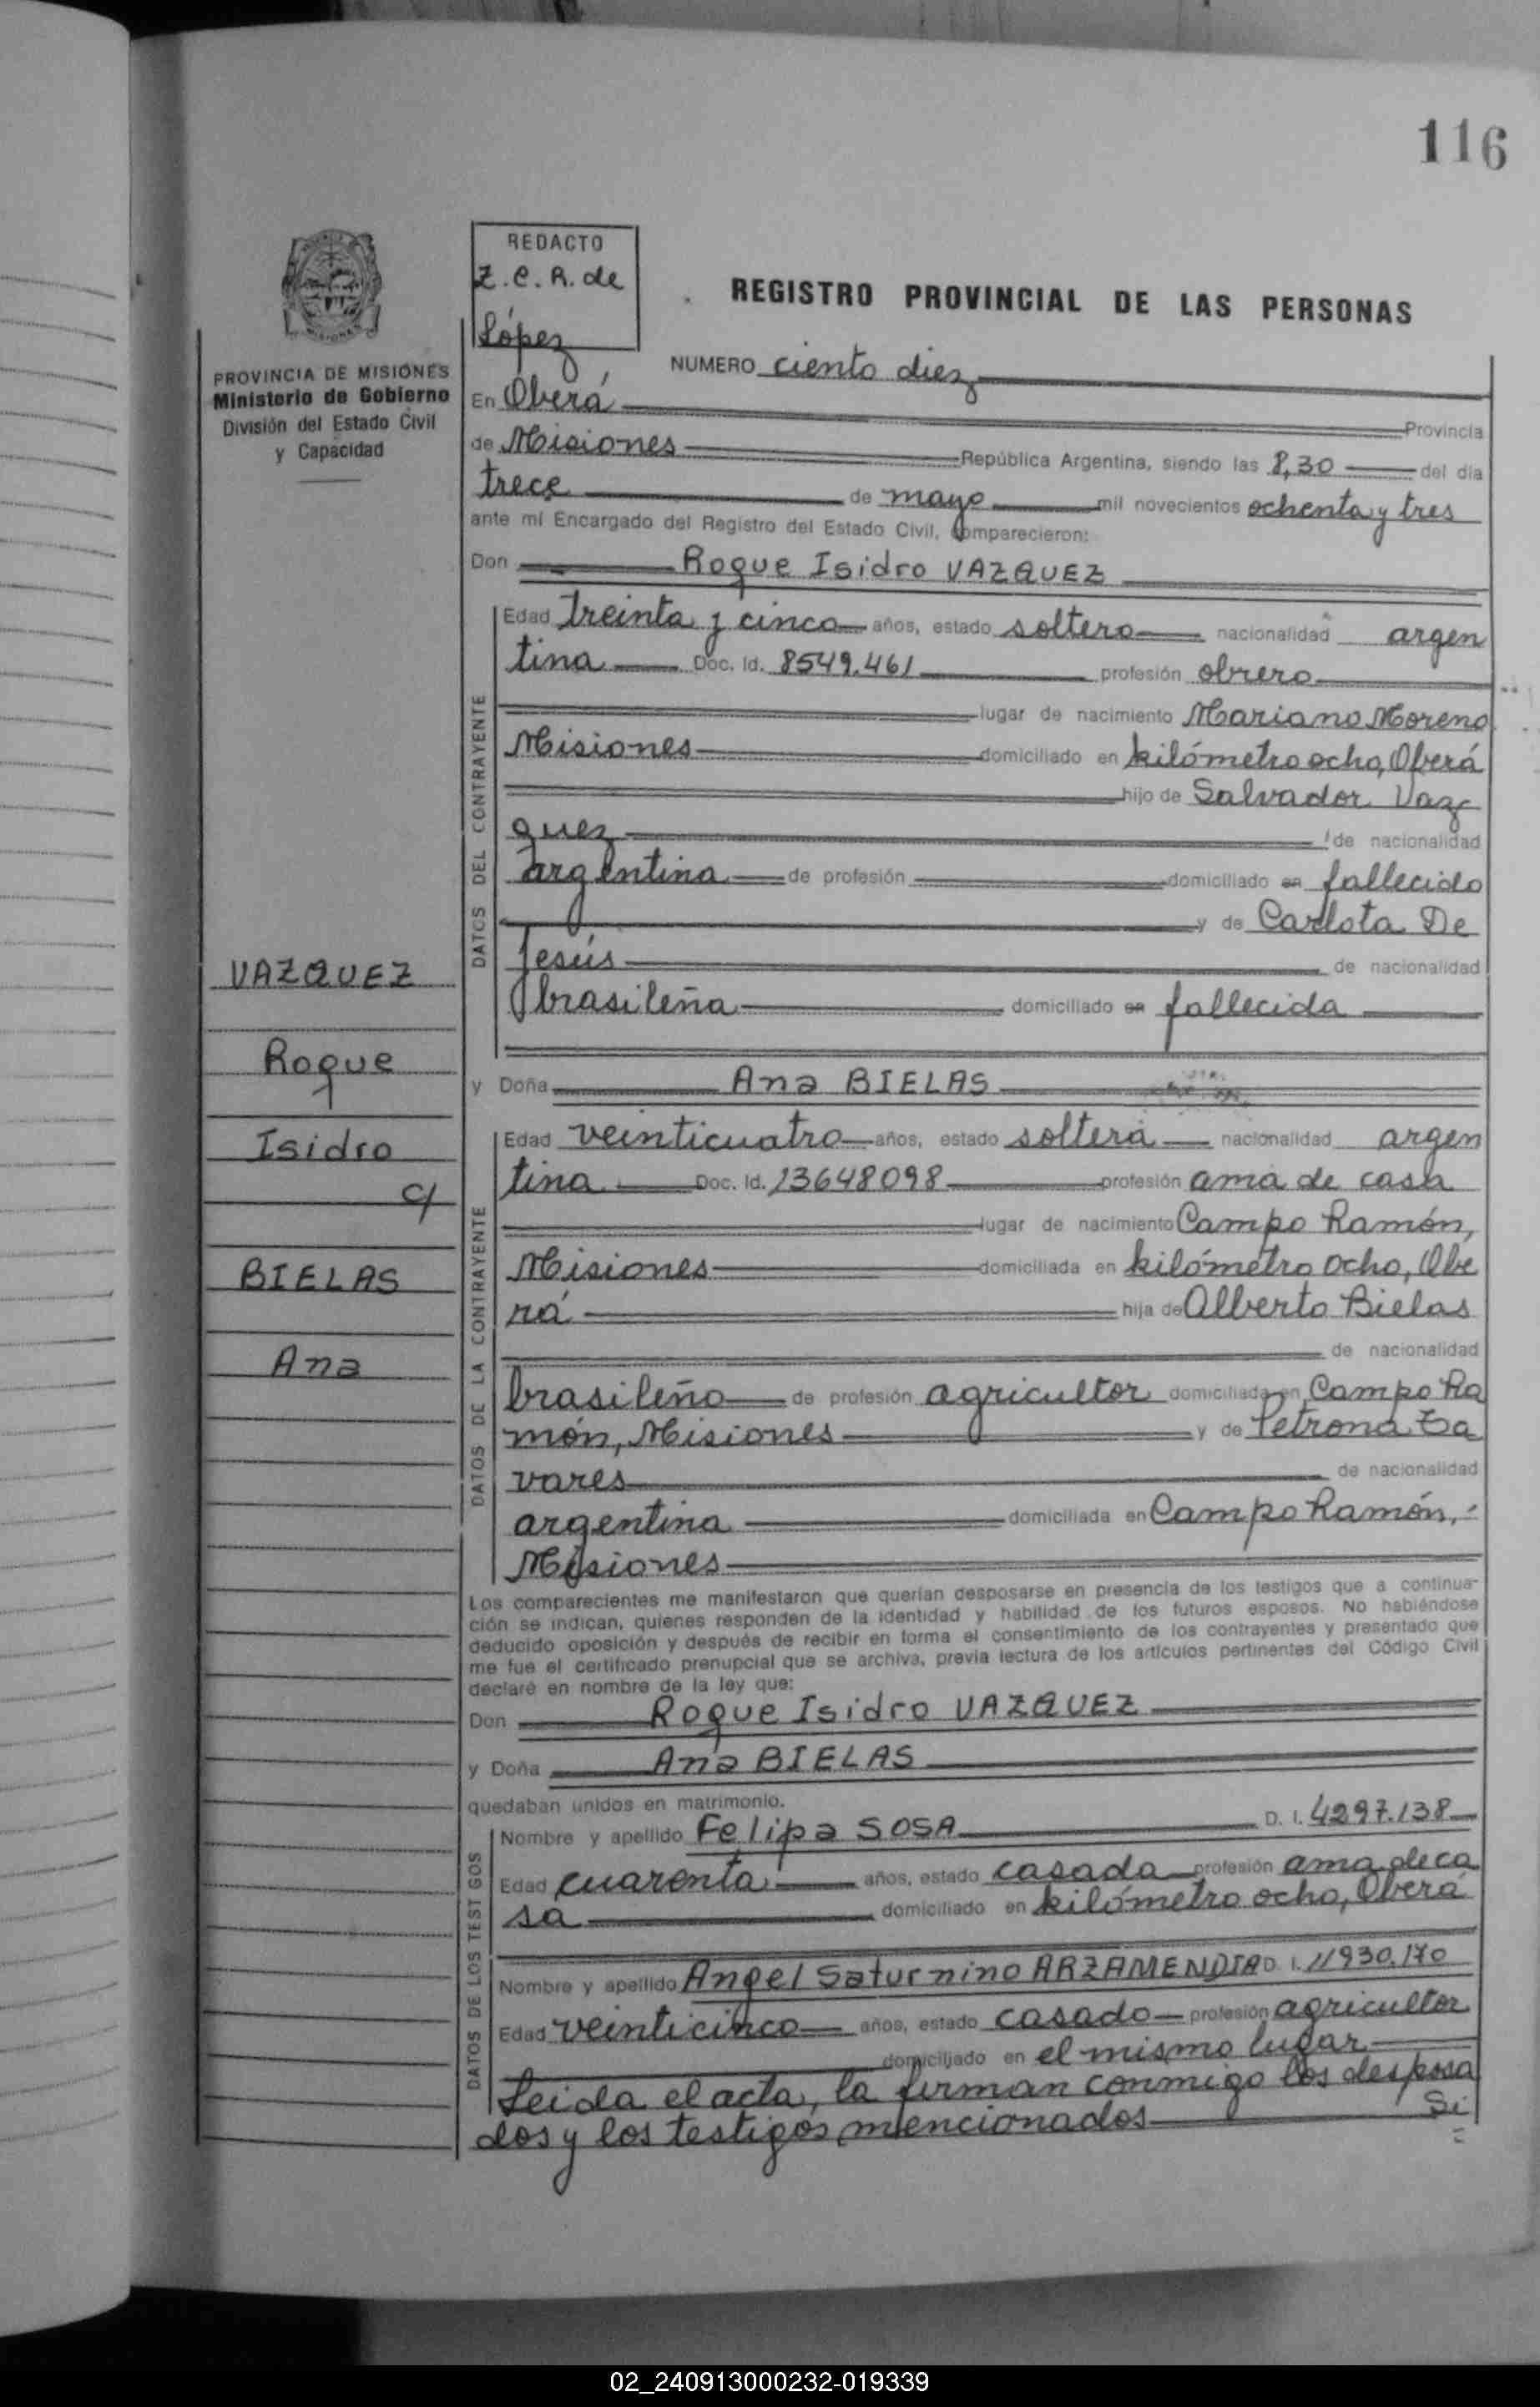 116
REDACTO
Z.C.R. de
López
REGISTRO PROVINCIAL DE LAS PERSONAS
PROVINCIA DE MISIONES
Ministerio de Gobierno
División del Estado Civil
y Capacidad
NUMERO ciento diez
En Oberá Provincia
de Misiones República Argentina, siendo las 8,30 del día
trece de mayo mil novecientos ochenta y tres
ante mí Encargado del Registro del Estado Civil, comparecieron:
Don Roque Isidro VAZQUEZ
DATOS DEL CONTRAYENTE
Edad treinta y cinco años, estado soltero nacionalidad argen
tina Doc. Id. 8549.461 profesión obrero
lugar de nacimiento Mariano Moreno
Misiones domiciliado en kilómetro ocho, Oberá
hijo de Salvador Vaz
quez de nacionalidad
argentina de profesión domiciliado en fallecido
y de Carlota De
Jesús de nacionalidad
brasileña domiciliado en fallecida
VAZQUEZ
Roque
Isidro
c/
BIELAS
Ana
y Doña Ana BIELAS
DATOS DE LA CONTRAYENTE
Edad veinticuatro años, estado soltera nacionalidad argen
tina Doc. Id. 13648098 profesión ama de casa
lugar de nacimiento Campo Ramón,
Misiones domiciliada en kilómetro ocho, Obe
rá hija de Alberto Bielas
de nacionalidad
brasileño de profesión agricultor domiciliado en Campo Ra
món, Misiones y de Petrona Ta
vares de nacionalidad
argentina domiciliada en Campo Ramón,
Misiones
Los comparecientes me manifestaron que querían desposarse en presencia de los testigos que a continua-
ción se indican, quienes responden de la identidad y habilidad de los futuros esposos. No habiéndose
deducido oposición y después de recibir en forma el consentimiento de los contrayentes y presentado que
me fue el certificado prenupcial que se archiva, previa lectura de los artículos pertinentes del Código Civil
declaré en nombre de la ley que:
Don Roque Isidro VAZQUEZ
y Doña Ana BIELAS
quedaban unidos en matrimonio.
DATOS DE LOS TEST GOS
Nombre y apellido Felipa SOSA D. I. 4297.138
Edad cuarenta años, estado casada profesión ama de ca
sa domiciliado en kilómetro ocho, Oberá
Nombre y apellido Angel Saturnino ARZAMENDIA D. I. 11930.170
Edad veinticinco años, estado casado profesión agricultor
domiciliado en el mismo lugar
Leida el acta, la firman conmigo los desposa
dos y los testigos mencionados Si
02_240913000232-019339